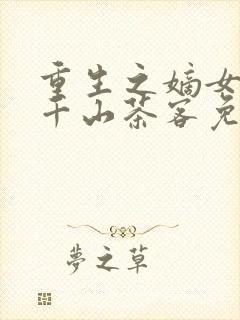 重生之嫡女
千山茶客免
夢之草